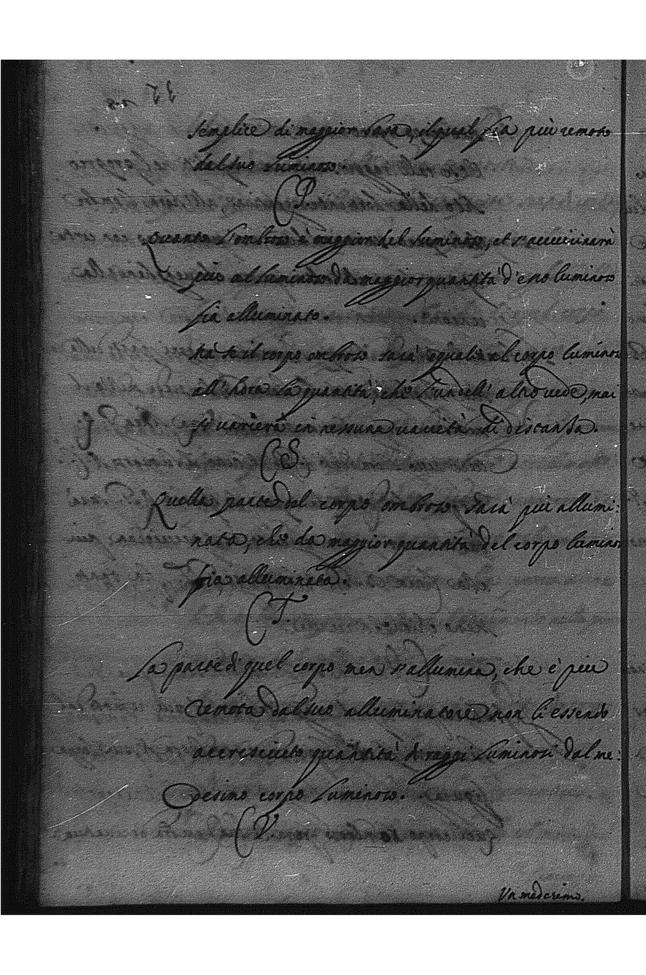 semplice di maggior basa, il qual sia più remoto
dal suo luminoso.
P.
Quanto l'ombroso è maggior del luminoso, et s'avvicinarà
più al luminoso da maggior quantità d'esso luminoso
sia alluminato.
il corpo ombroso sarà eguale al corpo luminoso
all'hora la quantità, che l'un dell'altro vede, mai
si varierà in nessuna varietà di distanza.
S.
Quella parte del corpo ombroso sarà più allumi:
nata, che da maggior quantità del corpo luminoso
sia alluminata.
T.
La parte di quel corpo men s'allumina, che è più
remota dal suo alluminatore non li essendo
accresciuto quantità di raggi luminosi dal me:
desimo corpo luminoso.
V.
Un medesimo.